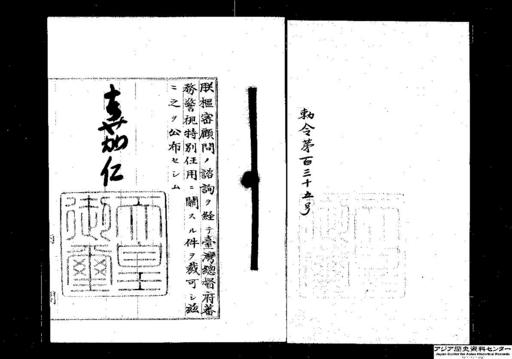 勅令第百三十五号
朕枢審顧問ノ諮詢ヲ経テ臺灣總督府蕃
務警視特別任用ニ關スル件ヲ裁可シ茲
ニ之ヲ公布セシム
嘉仁
天皇
御璽
アジア歴史資料センター
Japan Center for Asian Historical Records